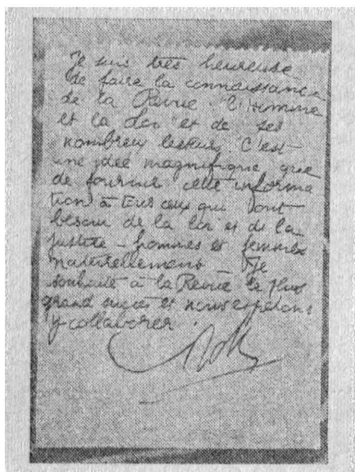 Je suis très heureuse
de faire la connaissance
de la Revue "l'Homme
et la Loi" et de ses
nombreux lecteurs. C'est
une idée magnifique que
de fournir cette informa
tion à tous ceux qui ont
besoin de la loi et de la
justice – hommes et femmes
naturellement – Je
souhaite à la Revue le plus
grand succès et nous espérons
y collaborer.